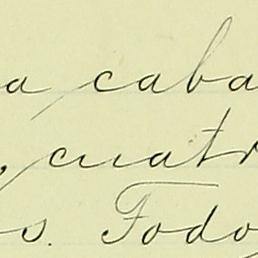 a caba
, cuatr
s. Todo